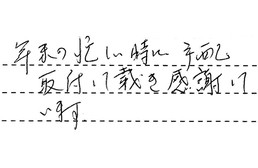 年末の忙しい時に手配
取付して戴き感謝して
います